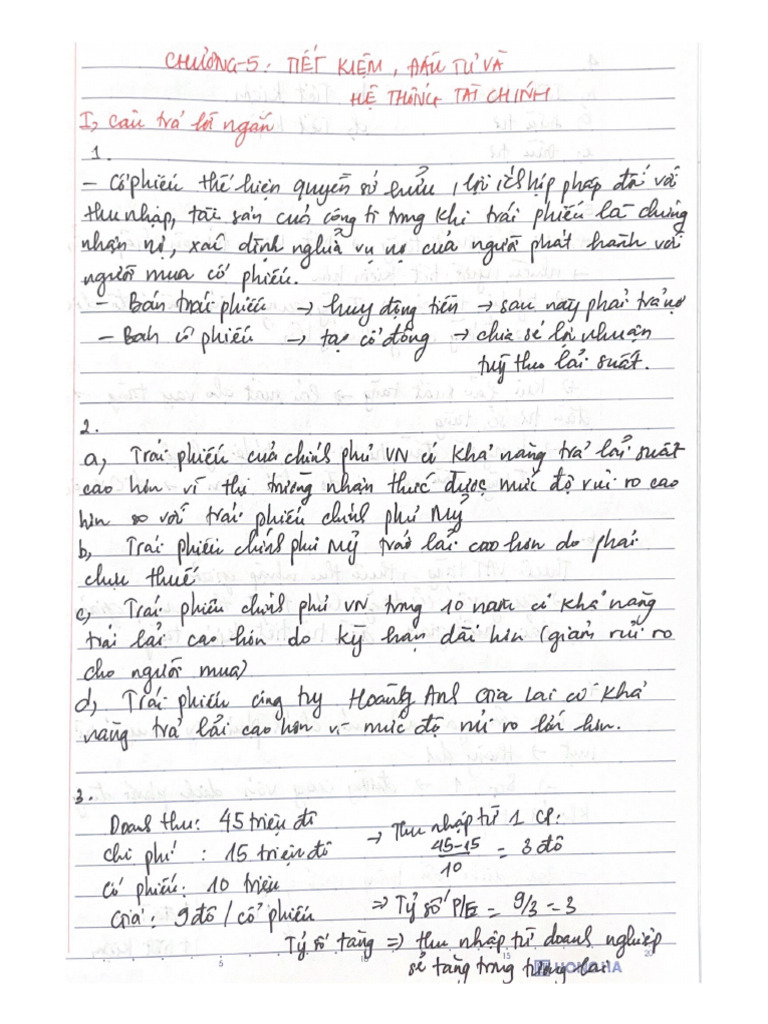 CHƯƠNG-5: TIẾT KIỆM, ĐẦU TƯ VÀ
HỆ THỐNG TÀI CHÍNH
I, Câu trả lời ngắn
1.
- Cổ phiếu thể hiện quyền sở hữu, lợi ích hợp pháp đối với
thu nhập, tài sản của công ti trong khi trái phiếu là chứng
nhận nợ, xác định nghĩa vụ nợ của người phát hành với
người mua cổ phiếu.
- Bán trái phiếu → huy động tiền → sau này phải trả nợ
- Bán cổ phiếu → tạo cổ đông → chia sẻ lợi nhuận
tuỳ theo lãi suất.
2.
a, Trái phiếu của chính phủ VN có khả năng trả lãi suất
cao hơn vì thị trường nhận thức được mức độ rủi ro cao
hơn so với trái phiếu chính phủ Mỹ
b, Trái phiếu chính phủ Mỹ trả lãi cao hơn do phải
chịu thuế
c, Trái phiếu chính phủ VN trong 10 năm có khả năng
trái lãi cao hơn do kỳ hạn dài hơn (giảm rủi ro
cho người mua)
d, Trái phiếu công ty Hoàng Anh Gia Lai có khả
năng trả lãi cao hơn vì mức độ rủi ro lớn hơn.
3.
Doanh thu: 45 triệu đô → Thu nhập từ 1 CP:
Chi phí : 15 triệu đô 45-15/10 = 3 đô
Cổ phiếu: 10 triệu
Giá: 9 đô / cổ phiếu => Tỷ số P/E = 9/3 = 3
Tỷ số tăng => thu nhập từ doanh nghiệp
sẽ tăng trong tương lai
5 10 15 20
HONG HA